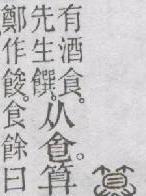 有酒食。
先生饌。从食。算
鄭作餕。食餘曰